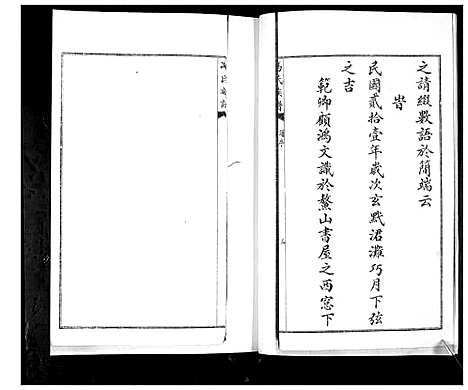 之請綴數語於簡端云
旹
民國貳拾壹年歲次玄黓涒灘巧月下弦
之吉
範卿顧鴻文識於鰲山書屋之西窓下